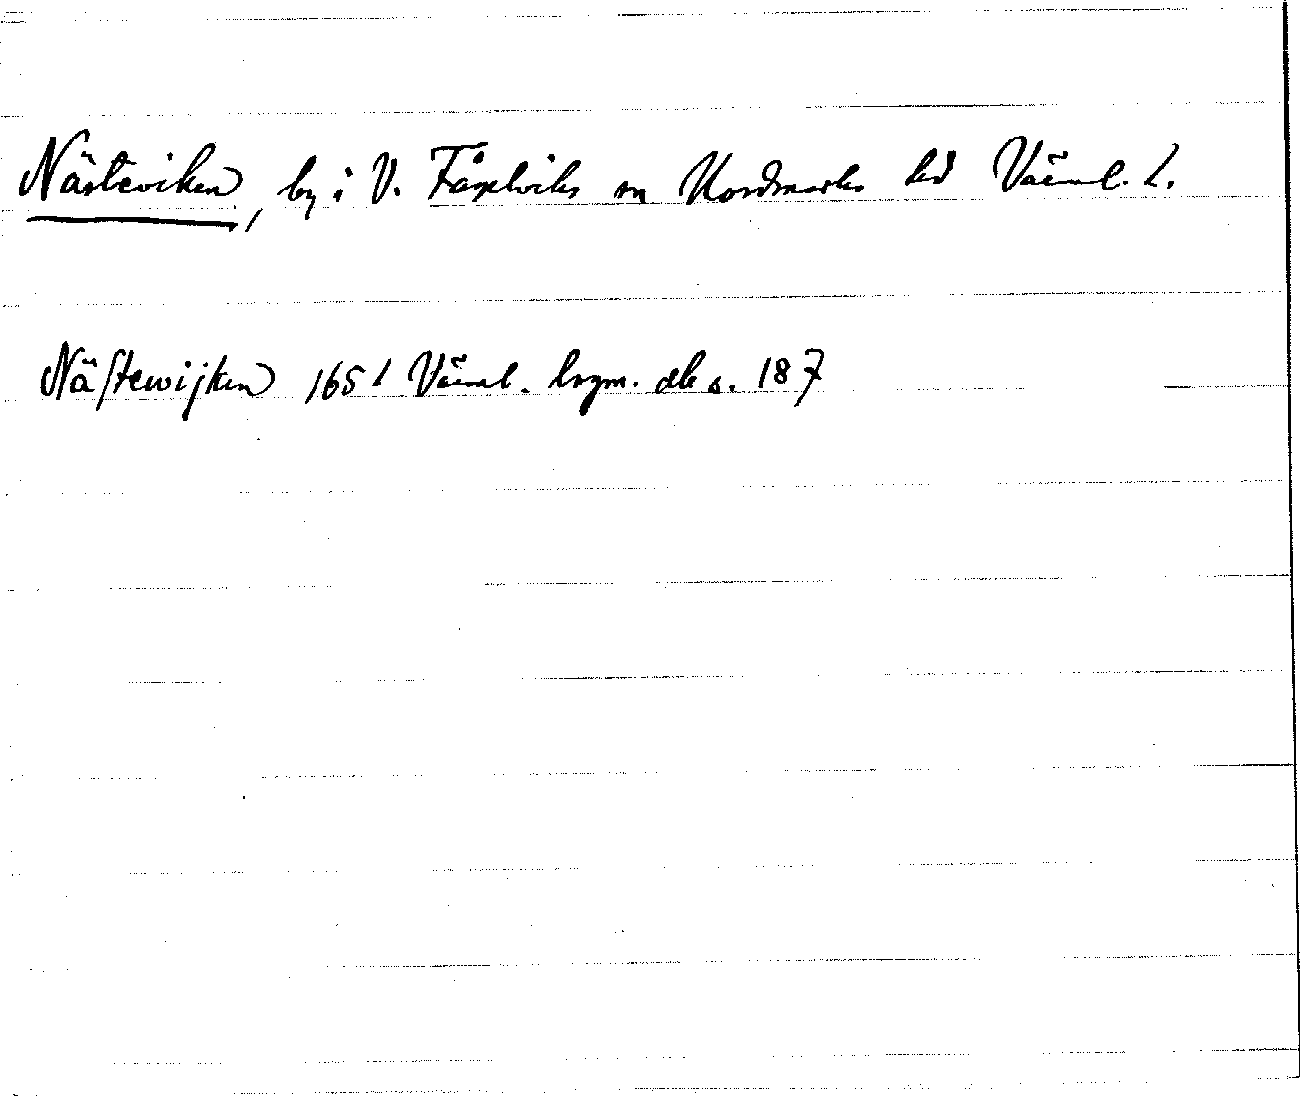 Nästeviken, by i V. Fågelviks sn Nordmarks hd Värml. L.
Näſtewijken 1651 Värml. lrgm. dla. 187